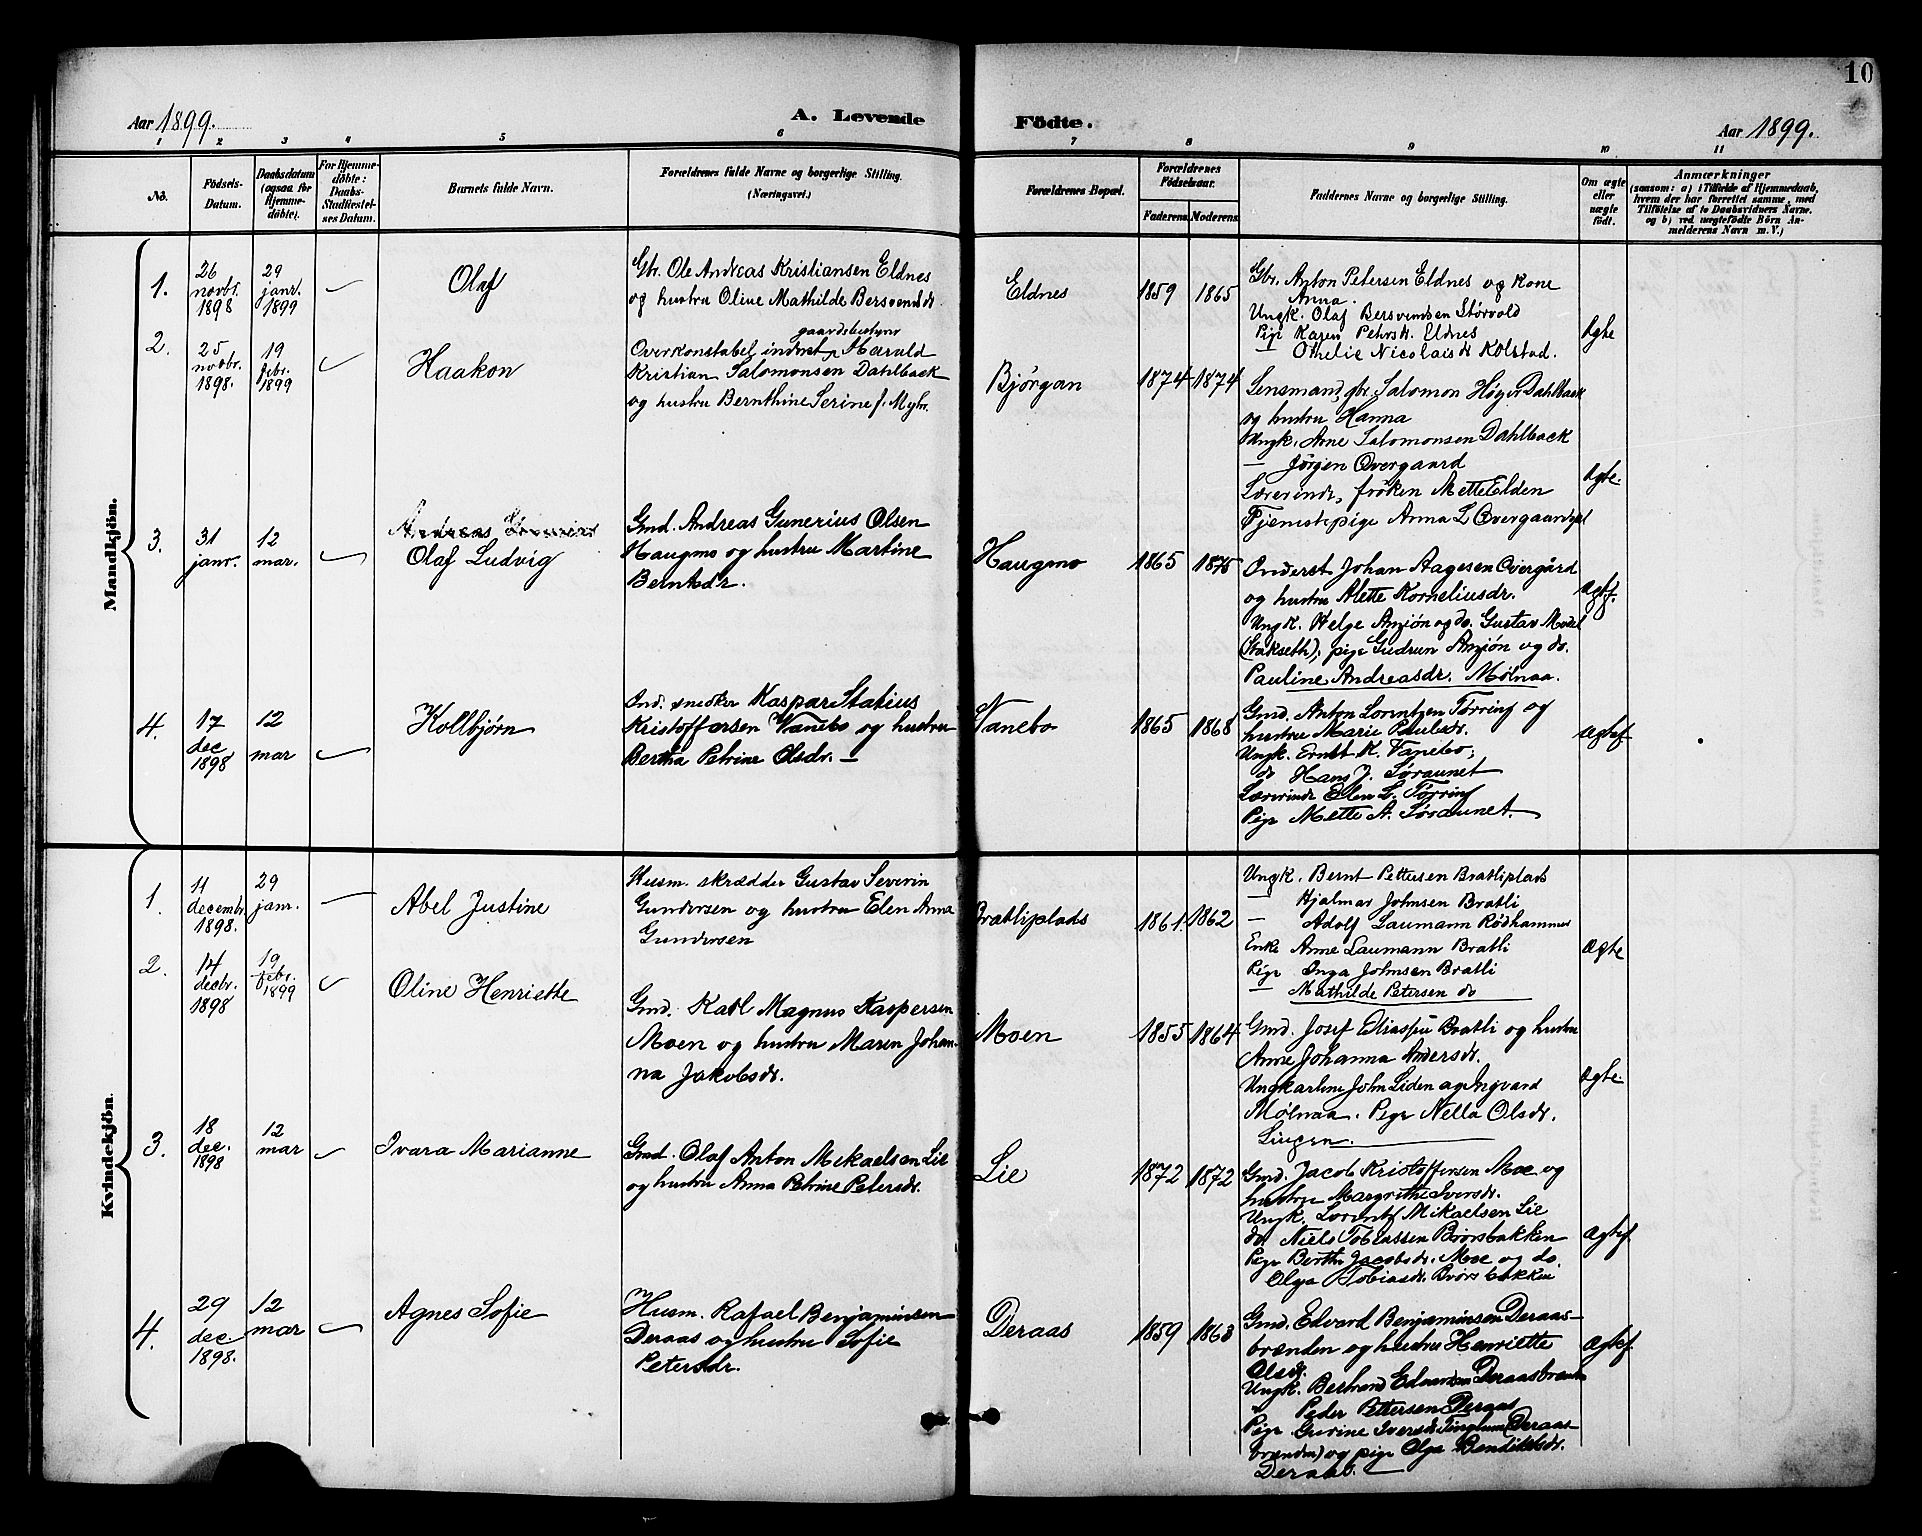 10
Aar 1899.
A. Levende
Födte.
Aar 1899.
1 2 3 4 5 6 7 8 9 10 11
No.
Födsels-
Datum.
Daabsdatum
(ogsaa for
Hjemme-
döbte).
For Hjemme-
döbte:
Daabs-
Stadfæstel-
ses Datum.
Barnets fulde Navn.
Forældrenes fulde Navne og borgerlige Stilling.
(Næringsvei.)
Forældrenes Bopæl.
Forældrenes
Födselsaar.
Faderens.
Moderens.
Faddernes Navne og borgerlige Stilling.
Om ægte
eller
uægte
født.
Anmærkninger
(saasom: a) i Tilfælde af Hjemmedaab,
hvem der har forrettet samme, med
Tilföielse af to Daabsvidners Navne.
og b) ved uægtefödte Börn An-
melderens Navn m. V.)
Mandkjön.
1.
26
novbr.
1898
29
janr.
1899
Olaf
Gbr. Ole Andreas Kristiansen Eldnes
og hustru Oline Mathilde Bersvendsdr.
Eldnes
1859
1865
Gbr. Anton Petersen Eldnes og kone
Anna.
Ungk. Olaf Bersvendsen Størvold
Pige Karen Petersdr. Eldnes
— Othelie Nicolaisdr Kolstad.
ægte
2.
25
novbr.
1898.
19
febr.
1899
Haakon
gaardsbestyrer
Overkonstabel inderst, Harald
Kristian Salomonsen Dahlback
og hustru Bernthine Serine f. Myhr.
Bjørgan
1874
1874
Lensmand, gbr. Salomon Høyer Dahlback
og hustru Hanna
Ungk. Arne Salomonsen Dahlback
— Jörgen Overgaard
Lærerinde, frøken Mette Elden
Tjenestepige Anna L Overgaard
ægte.
3.
31
janr.
12
mar.
Andreas
Olaf Ludvig
Gmd. Andreas Gunerius Olsen
Haugmo og hustru Martine
Berntsdr.
Haugmo
1865
1875
Inderst Johan Aagesen Overgård
og hustru Alette Korneliusdr.
Ungk. Helge Amjön og do. Gustav
(Stakseth), pige Gudrun Amjön og do.
Pauline Andreasdr. Mølnaa.
4.
17
dec
1898
12
mar
Kollbjørn
Ind. snedker Kaspar Statius
Kristoffersen Vanebo og hustru
Bertha Petrine Olsdr. —
Vanebo
1865
1868
Gmd. Anton Lorentzen Tørring og
hustru Marie Paulsdr.
Ungk. Ernst K. Vanebo,
do Hans J. Søraunet
Lærerinde Elen L. Tørring
Pige Mette A. Søraunet.
Kvindekjön.
1.
11
decembr.
1898.
29
janr.
Abel Justine
Husm. skrædder Gustav Severin
Gundersen og hustru Elen Anna
Gundersen
Bratliplads
1861.
1862
Ungk. Bernt Pettersen Bratliplads
— Hjalmar Johnsen Bratli
— Adolf Laumann Rødhammer
Enke Anne Laumann Bratli
Pige Inga Johnsen Bratli
— Mathilde Petersen do
ægte
2.
14
decbr.
1898
19
febr.
1899
Oline Henriette
Gmd. Karl Magnus Kaspersen
Moen og hustru Maren Johan-
na Jakobsdr.
Moen
1855
1864
Gmd. Josef Eliassen Bratli og hustru
Anne Johanna Andersdr.
Ungkarlene John Liden og Ingvard
Mølnaa. Pige Nella Olsdr.
ægte.
3.
18
dec.
1898
12
mar
Ivara Marianne
Gmd. Olaf Anton Mikaelsen Lie
og hustru Anna Petrine Petersdr.
Lie
1872
1872
Gmd. Jacob Kristoffersen Moe og
hustru Margrethe Iversdr.
Ungk. Lorents Mikaelsen Lie
do. Niels Tobiassen Brørsbakken
Pige Berthe Jacobsdr. Moe og do.
Olga Tobiasdr. Brørsbakken
4.
29
dec.
1898.
12
mar
Agnes Sofie
Husm. Rafael Benjaminsen
Deraas og hustru Sofie
Petersdr.
Deraas
1859
1863
Gmd. Edvard Benjaminsen Deraas-
brænden og hustru Henriette
Olsdr.
Ungk. Bertrand Edvardsen Deraasbrænden
Peder Pettersen Deraas
Pige Gurine Iversdr. (Deraas-
brænden) og pige Olga Bendiksdr.
Deraas. —